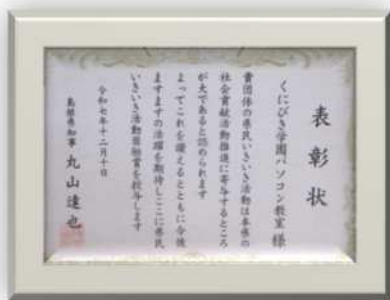 表彰状
くにびき学園パソコン教室 様
貴団体の県民いきいき活動は本県の
社会貢献活動推進に寄与するところ
が大であると認められます
よってこれを讃えるとともに今後
ますますの活躍を期待しここに県民
いきいき活動奨励賞を授与します
令和七年十二月十日
島根県知事 丸山達也